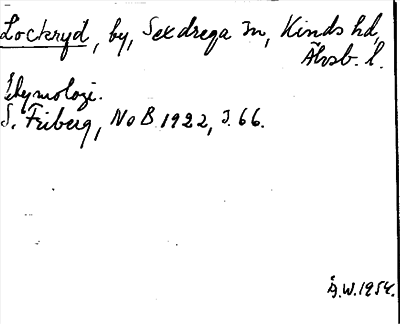 Lockryd, by, Sexdrega sn, Kinds hd,
Älvsb. l.
Etymologi.
S. Friberg, NoB 1922, s. 66.
Å.W. 1954.